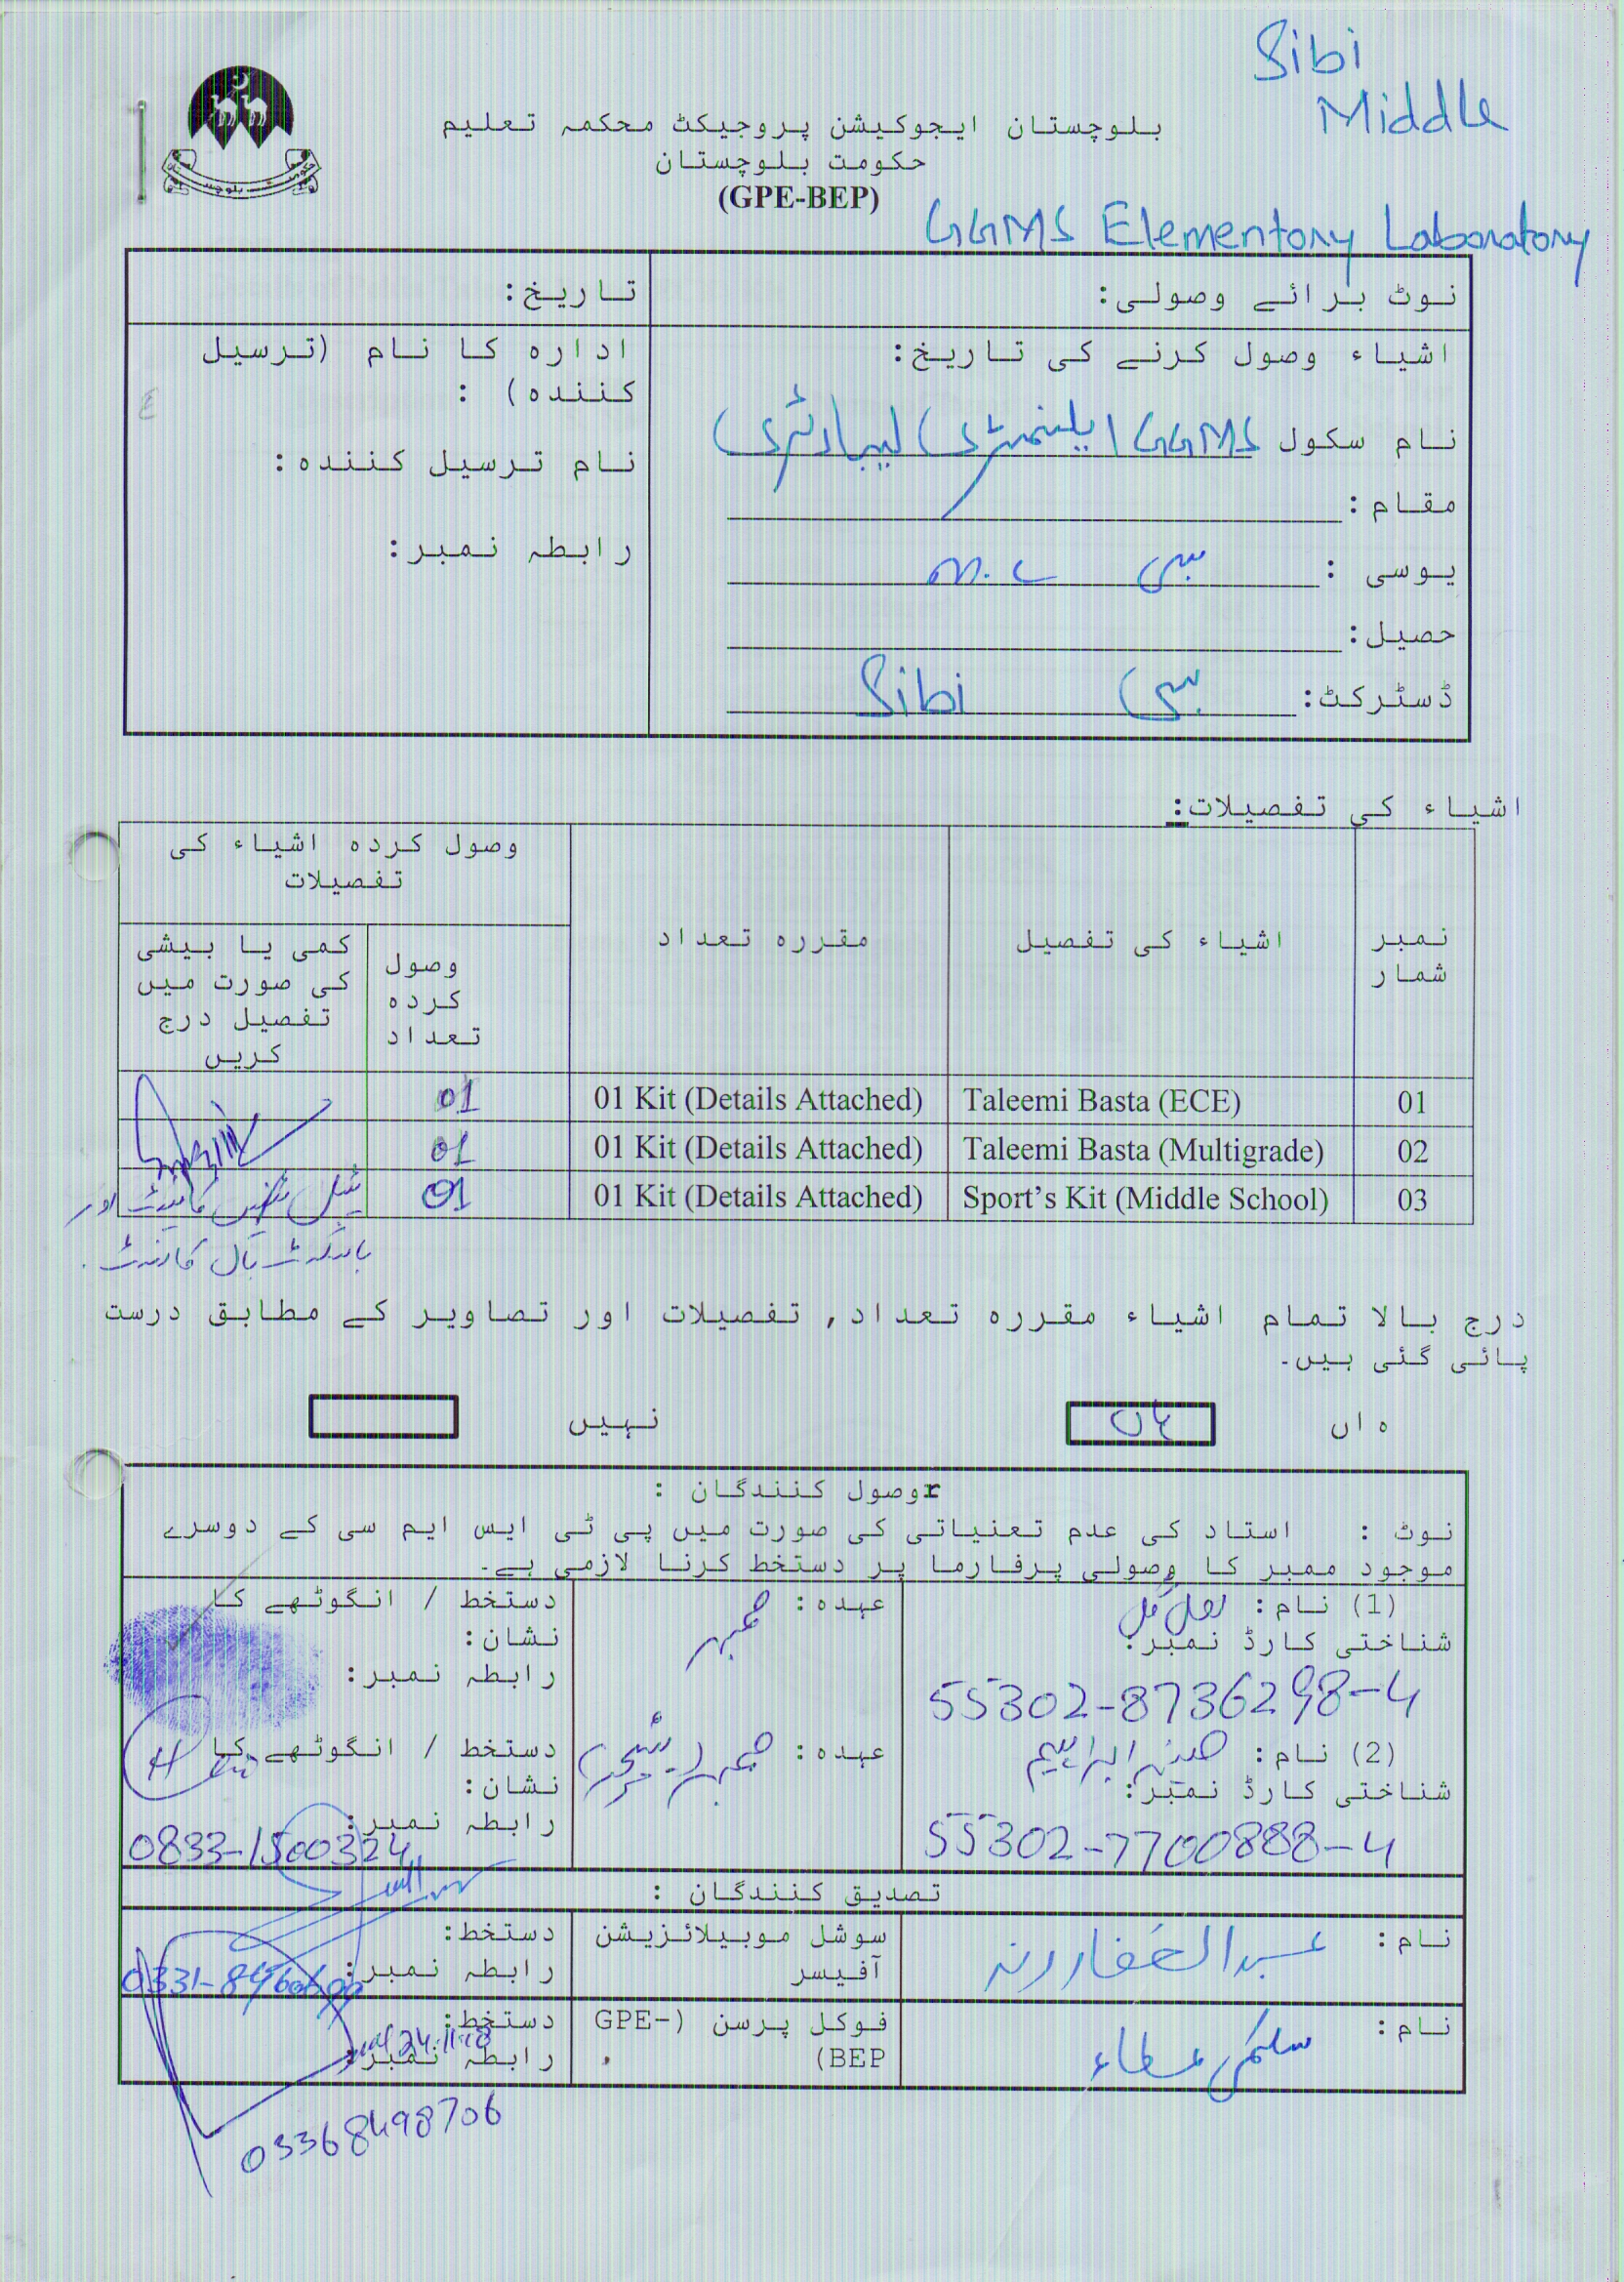 Sibi
Middle
بلوچستان ایجوکیشن پروجیکٹ محکمہ تعلیم
حکومت بلوچستان
(GPE-BEP)
GGMS Elementory Laboratory
نوٹ برائے وصولی:
تاریخ:
اشیاء وصول کرنے کی تاریخ:
نام سکول GGMS ایلیمنٹری لیبارٹری
مقام:
یوسی : سبی M.C
حصیل:
ڈسٹرکٹ: سبی Sibi
ادارہ کا نام (ترسیل
کنندہ) :
نام ترسیل کنندہ:
رابطہ نمبر:
اشیاء کی تفصیلات:
نمبر شمار
اشیاء کی تفصیل
مقررہ تعداد
وصول کردہ اشیاء کی تفصیلات
وصول کردہ تعداد
کمی یا بیشی کی صورت میں تفصیل درج کریں
01 Taleemi Basta (ECE) 01 Kit (Details Attached) 01
02 Taleemi Basta (Multigrade) 01 Kit (Details Attached) 01
03 Sport’s Kit (Middle School) 01 Kit (Details Attached) 01
ٹیبل ٹینس کائنٹ اور
باسکٹ بال کائنٹ
درج بالا تمام اشیاء مقررہ تعداد, تفصیلات اور تصاویر کے مطابق درست
پائی گئی ہیں۔
ہاں ہاں
نہیں
rوصول کنندگان :
نوٹ : استاد کی عدم تعنیاتی کی صورت میں پی ٹی ایس ایم سی کے دوسرے
موجود ممبر کا وصولی پرفارما پر دستخط کرنا لازمی ہے۔
(1) نام: لعل گل
شناختی کارڈ نمبر:
55302-8736298-4
عہدہ: ممبر
دستخط / انگوٹھے کا
نشان:
رابطہ نمبر:
(2) نام: ابراہیم
شناختی کارڈ نمبر:
55302-7700888-4
عہدہ: ممبر (ٹیچر)
دستخط / انگوٹھے کا
نشان:
رابطہ نمبر:
0833-1500324
تصدیق کنندگان :
نام: عبدالغفار رند
سوشل موبیلائزیشن
آفیسر
دستخط:
رابطہ نمبر:
نام: سلیم عطاء
فوکل پرسن (GPE-
BEP)
دستخط:
24.11.18
رابطہ نمبر:
03368498706